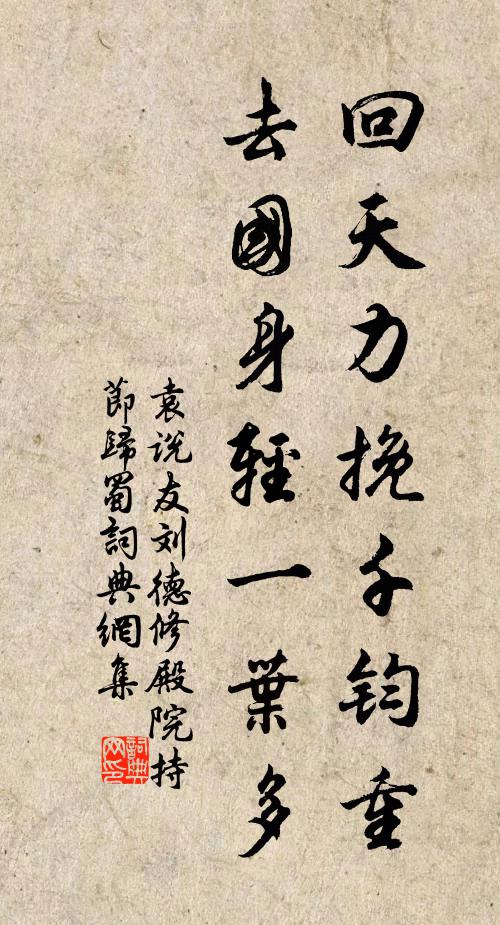 回天力挽千钧重
去國身輕一葉多
袁说友刘德修殿院持
節歸蜀詞典網集
詞典網印